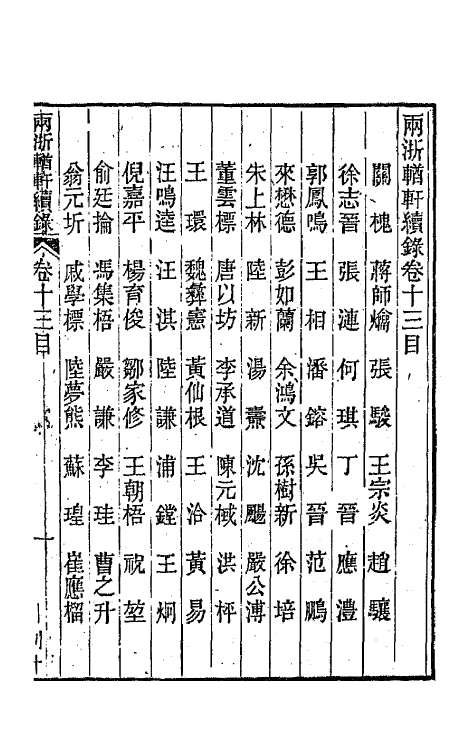 兩浙輶軒續錄卷十三目
關槐 蔣師爚 張駿 王宗炎 趙驤
徐志晉 張漣 何琪 丁晉 應澧
郭鳳鳴 王相 潘鎔 吳晉 范鵬
來懋德 彭如蘭 余鴻文 孫樹新 徐培
朱上林 陸新 湯燾 沈颺 嚴公溥
董雲標 唐以坊 李承道 陳元棫 洪枰
王環 魏彝憲 黃仙根 王洽 黃易
汪鳴逵 汪淇 陸謙 浦鏜 王炯
倪嘉平 楊育俊 鄒家修 王朝梧 祝堃
俞廷掄 馮集梧 嚴謙 李珪 曹之升
翁元圻 戚學標 陸夢熊 蘇瑝 崔應榴
兩浙輶軒續錄 卷十三目 一